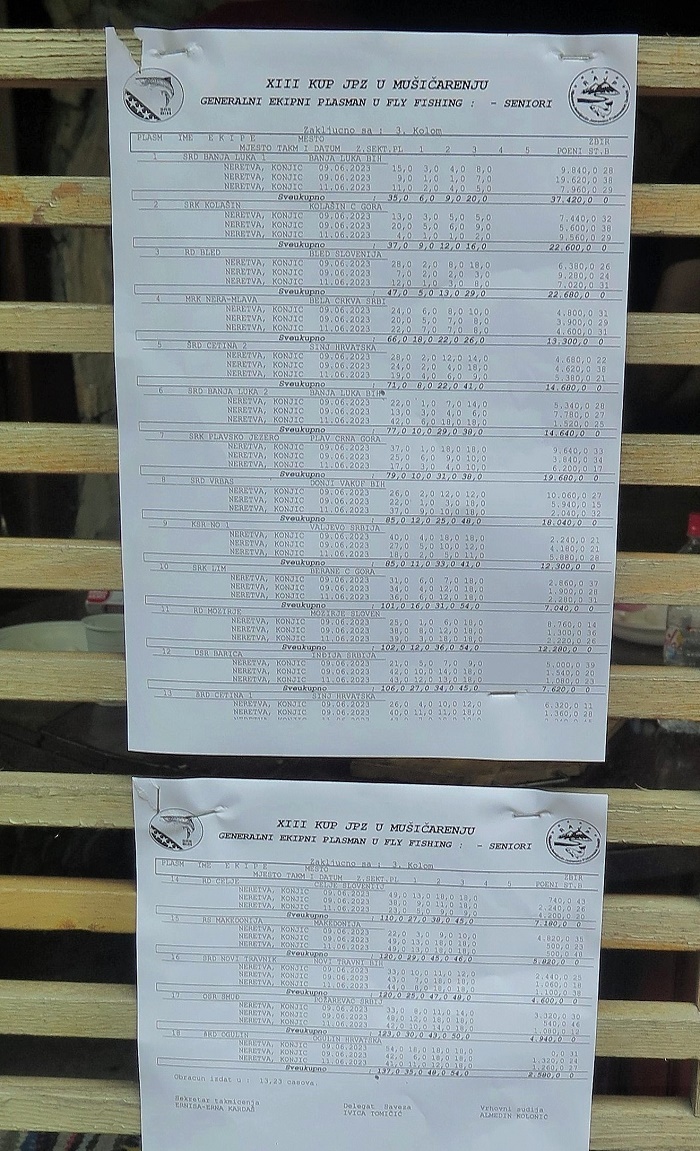 XIII KUP JPZ U MUŠIČARENJU
GENERALNI EKIPNI PLASMAN U FLY FISHING : - SENIORI
Zaključno sa : 3. Kolom
PLASM IME E K I P E MESTO ZBIR
MJESTO TAKM I DATUM Z.SEKT.PL 1 2 3 4 5 POENI ST.B
1 SRD BANJA LUKA 1 BANJA LUKA BIH
NERETVA, KONJIC 09.06.2023 15,0 3,0 4,0 8,0 9.840,0 28
NERETVA, KONJIC 09.06.2023 9,0 1,0 1,0 7,0 19.620,0 38
NERETVA, KONJIC 11.06.2023 11,0 2,0 4,0 5,0 7.960,0 29
Sveukupno : 35,0 6,0 9,0 20,0 37.420,0 0
2 SRK KOLAŠIN KOLAŠIN C GORA
NERETVA, KONJIC 09.06.2023 13,0 3,0 5,0 5,0 7.440,0 32
NERETVA, KONJIC 09.06.2023 20,0 5,0 6,0 5.600,0 38
NERETVA, KONJIC 11.06.2023 4,0 1,0 1,0 2,0 9.560,0 29
Sveukupno : 37,0 9,0 12,0 16,0 22.600,0 0
3 RD BLED BLED SLOVENIJA
NERETVA, KONJIC 09.06.2023 28,0 2,0 8,0 18,0 6.380,0 26
NERETVA, KONJIC 09.06.2023 7,0 2,0 2,0 3,0 9.280,0 24
NERETVA, KONJIC 11.06.2023 12,0 1,0 3,0 8,0 7.020,0 31
Sveukupno : 47,0 5,0 13,0 29,0 22.680,0 0
4 MRK NERA-MLAVA BELA CRKVA SRBI
NERETVA, KONJIC 09.06.2023 24,0 6,0 8,0 10,0 4.800,0 31
NERETVA, KONJIC 09.06.2023 20,0 5,0 7,0 8,0 3.900,0 29
NERETVA, KONJIC 11.06.2023 22,0 7,0 7,0 8,0 4.600,0 31
Sveukupno : 66,0 18,0 22,0 26,0 13.300,0 0
5 ŠRD CETINA 2 SINJ HRVATSKA
NERETVA, KONJIC 09.06.2023 28,0 2,0 12,0 14,0 4.680,0 22
NERETVA, KONJIC 09.06.2023 24,0 2,0 4,0 18,0 4.620,0 38
NERETVA, KONJIC 11.06.2023 19,0 4,0 6,0 9,0 5.380,0 21
Sveukupno : 71,0 8,0 22,0 41,0 14.680,0 0
6 SRD BANJA LUKA 2 BANJA LUKA BIH
NERETVA, KONJIC 09.06.2023 22,0 1,0 7,0 14,0 5.340,0 28
NERETVA, KONJIC 09.06.2023 13,0 3,0 4,0 6,0 7.780,0 27
NERETVA, KONJIC 11.06.2023 42,0 6,0 18,0 18,0 1.520,0 25
Sveukupno : 77,0 10,0 29,0 38,0 14.640,0 0
7 SRK PLAVSKO JEZERO PLAV CRNA GORA
NERETVA, KONJIC 09.06.2023 37,0 1,0 18,0 18,0 9.640,0 33
NERETVA, KONJIC 09.06.2023 25,0 6,0 9,0 10,0 3.840,0 34
NERETVA, KONJIC 11.06.2023 17,0 3,0 4,0 10,0 6.200,0 17
Sveukupno : 79,0 10,0 31,0 38,0 19.680,0 0
8 SRD VRBAS DONJI VAKUF BIH
NERETVA, KONJIC 09.06.2023 26,0 2,0 12,0 12,0 10.060,0 27
NERETVA, KONJIC 09.06.2023 22,0 1,0 3,0 18,0 5.940,0 15
NERETVA, KONJIC 11.06.2023 37,0 9,0 10,0 18,0 2.040,0 32
Sveukupno : 85,0 12,0 25,0 48,0 18.040,0 0
9 KSR NO 1 VALJEVO SRBIJA
NERETVA, KONJIC 09.06.2023 40,0 4,0 18,0 18,0 2.240,0 21
NERETVA, KONJIC 09.06.2023 27,0 5,0 10,0 12,0 4.180,0 21
NERETVA, KONJIC 11.06.2023 18,0 2,0 5,0 11,0 5.880,0 28
Sveukupno : 85,0 11,0 33,0 41,0 12.300,0 0
10 SRK LIM BERANE C GORA
NERETVA, KONJIC 09.06.2023 31,0 6,0 7,0 18,0 2.860,0 37
NERETVA, KONJIC 09.06.2023 34,0 4,0 12,0 18,0 1.900,0 28
NERETVA, KONJIC 11.06.2023 36,0 6,0 12,0 18,0 2.280,0 31
Sveukupno : 101,0 16,0 31,0 54,0 7.040,0 0
11 RD MOZIRJE MOZIRJE SLOVEN
NERETVA, KONJIC 09.06.2023 25,0 1,0 6,0 18,0 8.760,0 14
NERETVA, KONJIC 09.06.2023 38,0 8,0 12,0 18,0 1.300,0 36
NERETVA, KONJIC 11.06.2023 39,0 3,0 18,0 18,0 2.220,0 26
Sveukupno : 102,0 12,0 36,0 54,0 12.280,0 0
12 USR BARICA INDIJA SRBIJA
NERETVA, KONJIC 09.06.2023 21,0 5,0 7,0 9,0 5.000,0 39
NERETVA, KONJIC 09.06.2023 42,0 10,0 14,0 18,0 1.540,0 20
NERETVA, KONJIC 11.06.2023 43,0 12,0 13,0 18,0 1.080,0 23
Sveukupno : 106,0 27,0 34,0 45,0 7.620,0 0
13 ŠRD CETINA 1 SINJ HRVATSKA
NERETVA, KONJIC 09.06.2023 26,0 4,0 10,0 12,0 6.320,0 11
NERETVA, KONJIC 09.06.2023 40,0 11,0 11,0 18,0 1.360,0 28
XIII KUP JPZ U MUŠIČARENJU
GENERALNI EKIPNI PLASMAN U FLY FISHING : - SENIORI
Zaključno sa : 3. Kolom
PLASM IME E K I P E MESTO ZBIR
MJESTO TAKM I DATUM Z.SEKT.PL 1 2 3 4 5 POENI ST.B
14 RD CELJE CELJE SLOVENIJ
NERETVA, KONJIC 09.06.2023 49,0 13,0 18,0 18,0 740,0 43
NERETVA, KONJIC 09.06.2023 38,0 9,0 11,0 18,0 2.240,0 26
NERETVA, KONJIC 11.06.2023 23,0 5,0 9,0 9,0 4.200,0 20
Sveukupno : 110,0 27,0 38,0 45,0 7.180,0 0
15 RS MAKEDONIJA MAKEDONIJA
NERETVA, KONJIC 09.06.2023 22,0 3,0 9,0 10,0 4.820,0 35
NERETVA, KONJIC 09.06.2023 49,0 13,0 18,0 18,0 500,0 23
NERETVA, KONJIC 11.06.2023 49,0 13,0 18,0 18,0 500,0 48
Sveukupno : 120,0 29,0 45,0 46,0 5.820,0 0
16 SRD NOVI TRAVNIK NOVI TRAVNI BIH
NERETVA, KONJIC 09.06.2023 33,0 10,0 11,0 12,0 2.440,0 25
NERETVA, KONJIC 09.06.2023 7,0 18,0 18,0 1.060,0 18
NERETVA, KONJIC 11.06.2023 44,0 8,0 18,0 18,0 1.100,0 37
Sveukupno : 120,0 25,0 47,0 48,0 4.600,0 0
17 OSR SMUĐ POŽAREVAC SRBIJ
NERETVA, KONJIC 09.06.2023 33,0 8,0 11,0 14,0 3.320,0 30
NERETVA, KONJIC 09.06.2023 540,0 46
NERETVA, KONJIC 11.06.2023 42,0 10,0 14,0 18,0 1.080,0 19
Sveukupno : 123,0 30,0 43,0 50,0 4.940,0 0
18 ŠRD OGULIN OGULIN HRVATSKA
NERETVA, KONJIC 09.06.2023 54,0 18,0 18,0 18,0 0,0 31
NERETVA, KONJIC 09.06.2023 42,0 6,0 18,0 18,0 1.320,0 24
NERETVA, KONJIC 11.06.2023 41,0 11,0 12,0 18,0 1.260,0 27
Sveukupno : 137,0 35,0 48,0 54,0 2.580,0 0
Obracun izdat u : 13,23 casova.
Sekretar takmicenja Delegat Saveza Vrhovni sudija
ERNISA-ERNA KARDAŠ IVICA TOMIČIĆ ALMEDIN KOLONIĆ